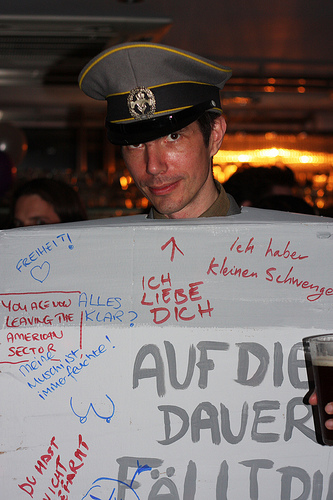 FREIHEIT!
Ich haber
kleinen Schwenge
ICH
LIEBE
DICH
YOU ARE NOW
LEAVING THE
AMERICAN
SECTOR
ALLES
KLAR?
meine
Muschi ist
immer feuchte!
AUF DIE
DAUER
FÄLLT DI
DU HAST
NICHT
GESPARMT